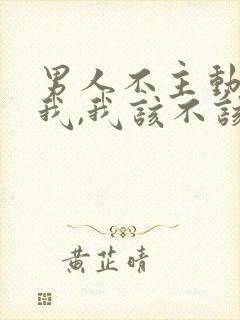 男人不主動
我,我該不該
黄芷晴